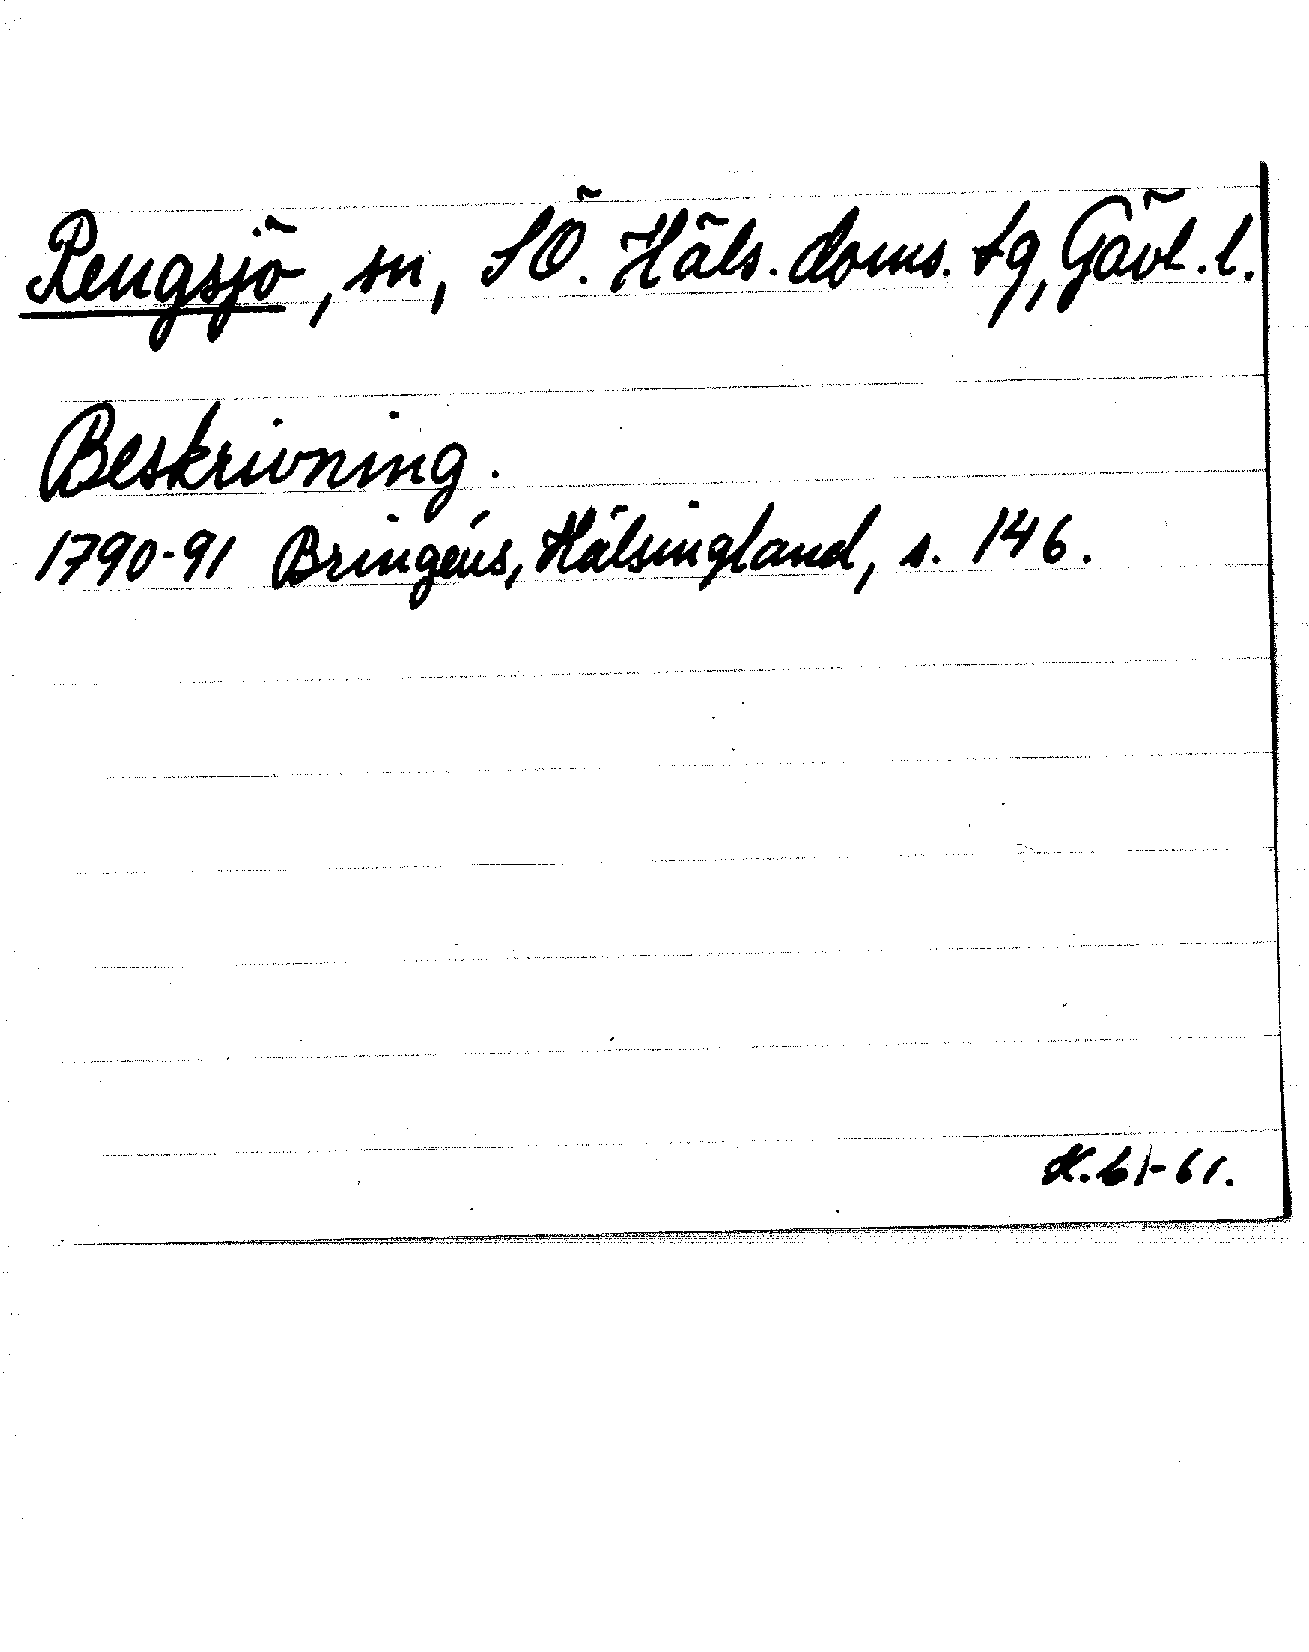 Rengsjö, sn, SÖ. Häls. doms. tg, Gävl. l.
Beskrivning.
1790-91 Bringéus, Hälsingland, s. 146.
61-61.